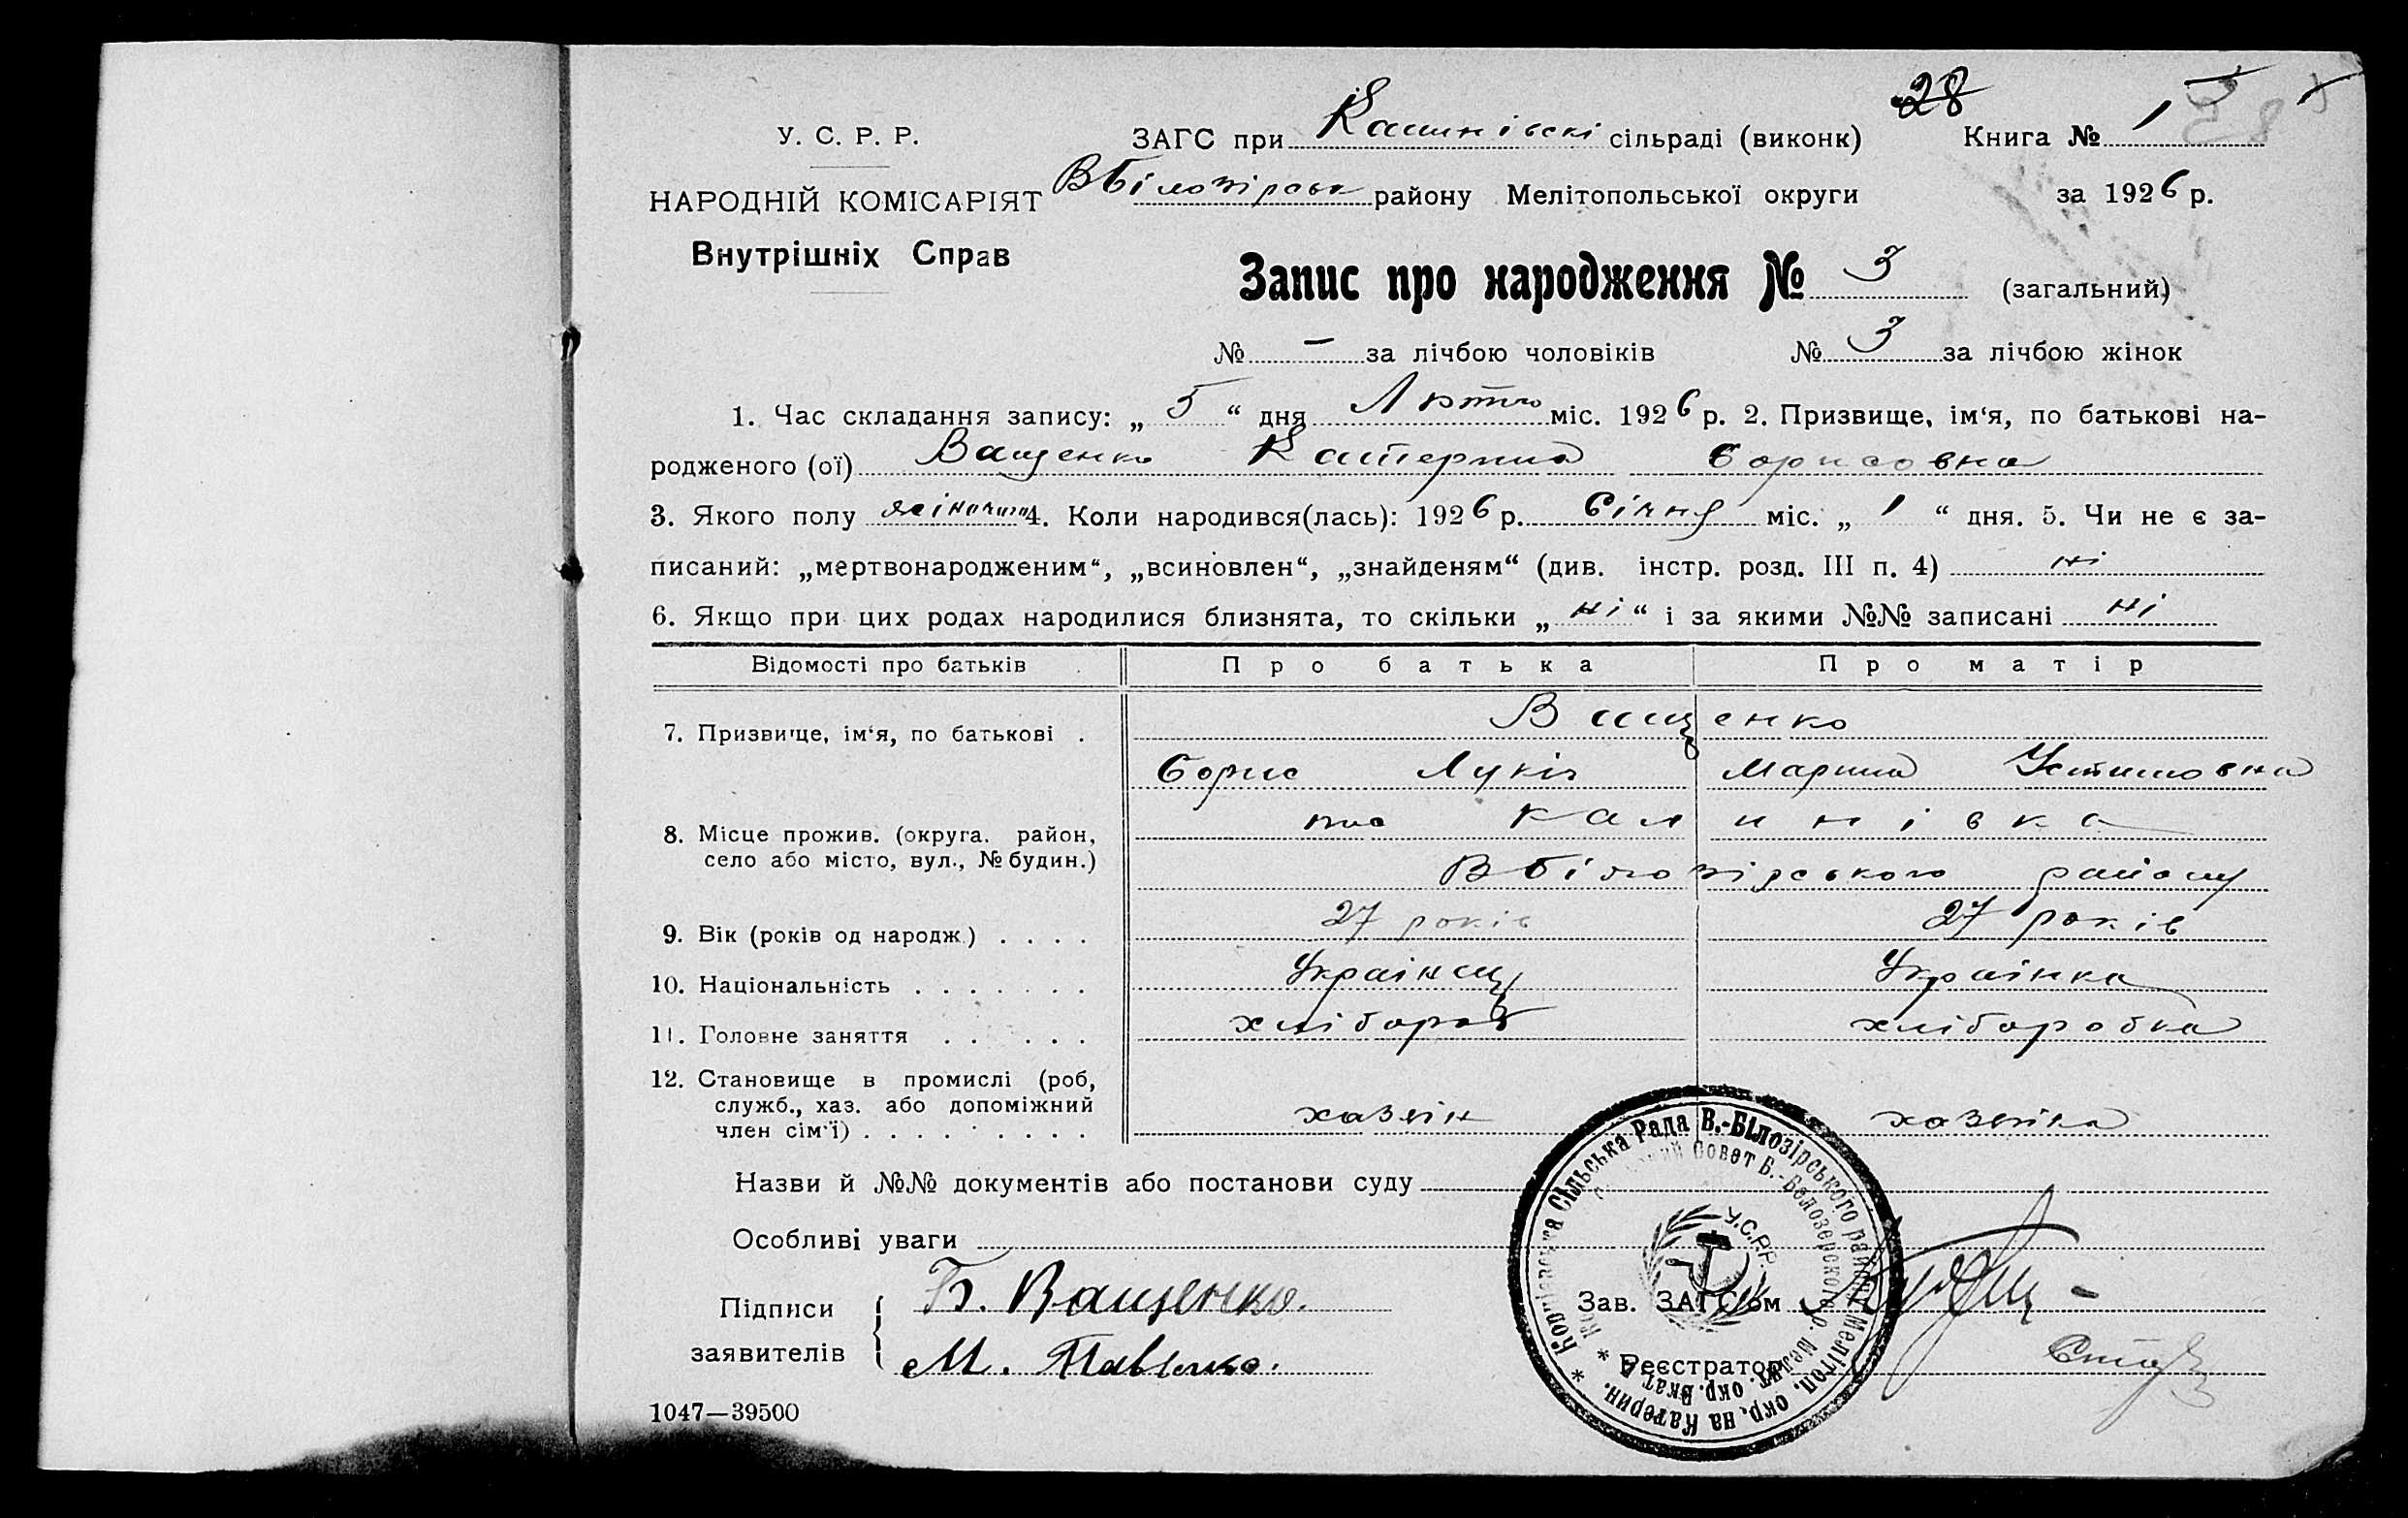 28
У. С. Р. Р. ЗАГС при сільраді (виконк) Книга № 1
НАРОДНІЙ КОМІСАРІЯТ ВБілозірськ району Мелітопольської округи за 1926 р.
Внутрішніх Справ
Запис про народження № 3 (загальний)
№ – за лічбою чоловіків № 3 за лічбою жінок
1. Час складання запису: „ 5 “ дня Лютого міс. 1926 р. 2. Призвище, ім‘я, по батькові на-
родженого (ої) Ващенко Катерина Борисовна
3. Якого полу жіночого 4. Коли народився(лась): 1926 р. Січня міс. „ 1 “ дня. 5. Чи не є за-
писаний: „мертвонародженим“, „всиновлен“, „знайденям“ (див. інстр. розд. III п. 4) ні
6. Якщо при цих родах народилися близнята, то скільки „ ні “ і за якими №№ записані ні
Відомості про батьків Про батька Про матір
7. Призвище, ім‘я, по батькові . Ващенко
Борис Лукіч Марина Устиновна
8. Місце прожив. (округа. район, Калинівка
село або місто, вул., № будин.) ВБілозірського району
9. Вік (років од народж.) . . . . 27 років 27 років
10. Національність . . . . . . . Українець Українка
11. Головне заняття . . . . . . хлібороб хліборобка
12. Становище в промислі (роб,
служб., хаз. або допоміжний хазяін хазяйка
член сім‘ї) . . . . . . . . .
Назви й №№ документів або постанови суду
Особливі уваги
Підписи Б. Ващенко.
заявителів М. Павленко.
Зав. ЗАГС‘ом
Реєстратор
Сільська Рада В.-Білозірського району Мелітоп. окр. на Катерин.
Совет Б.-Белозерского р. Мелит. окр. Екат.
У.С.Р.Р.
1047—39500